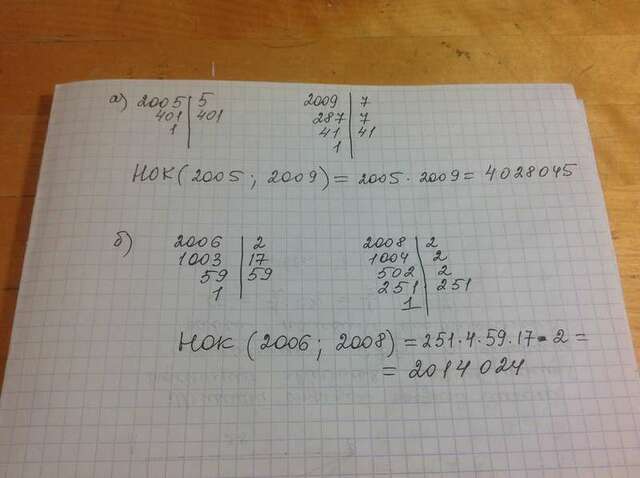 а) 2005 | 5 2009 | 7
401 | 401 287 | 7
1 | 41 | 41
1 |
НОК (2005 ; 2009) = 2005 · 2009 = 4028045
б) 2006 | 2 2008 | 2
1003 | 17 1004 | 2
59 | 59 502 | 2
1 | 251 | 251
1 |
НОК (2006 ; 2008) = 251·4·59·17·2 =
= 2014024